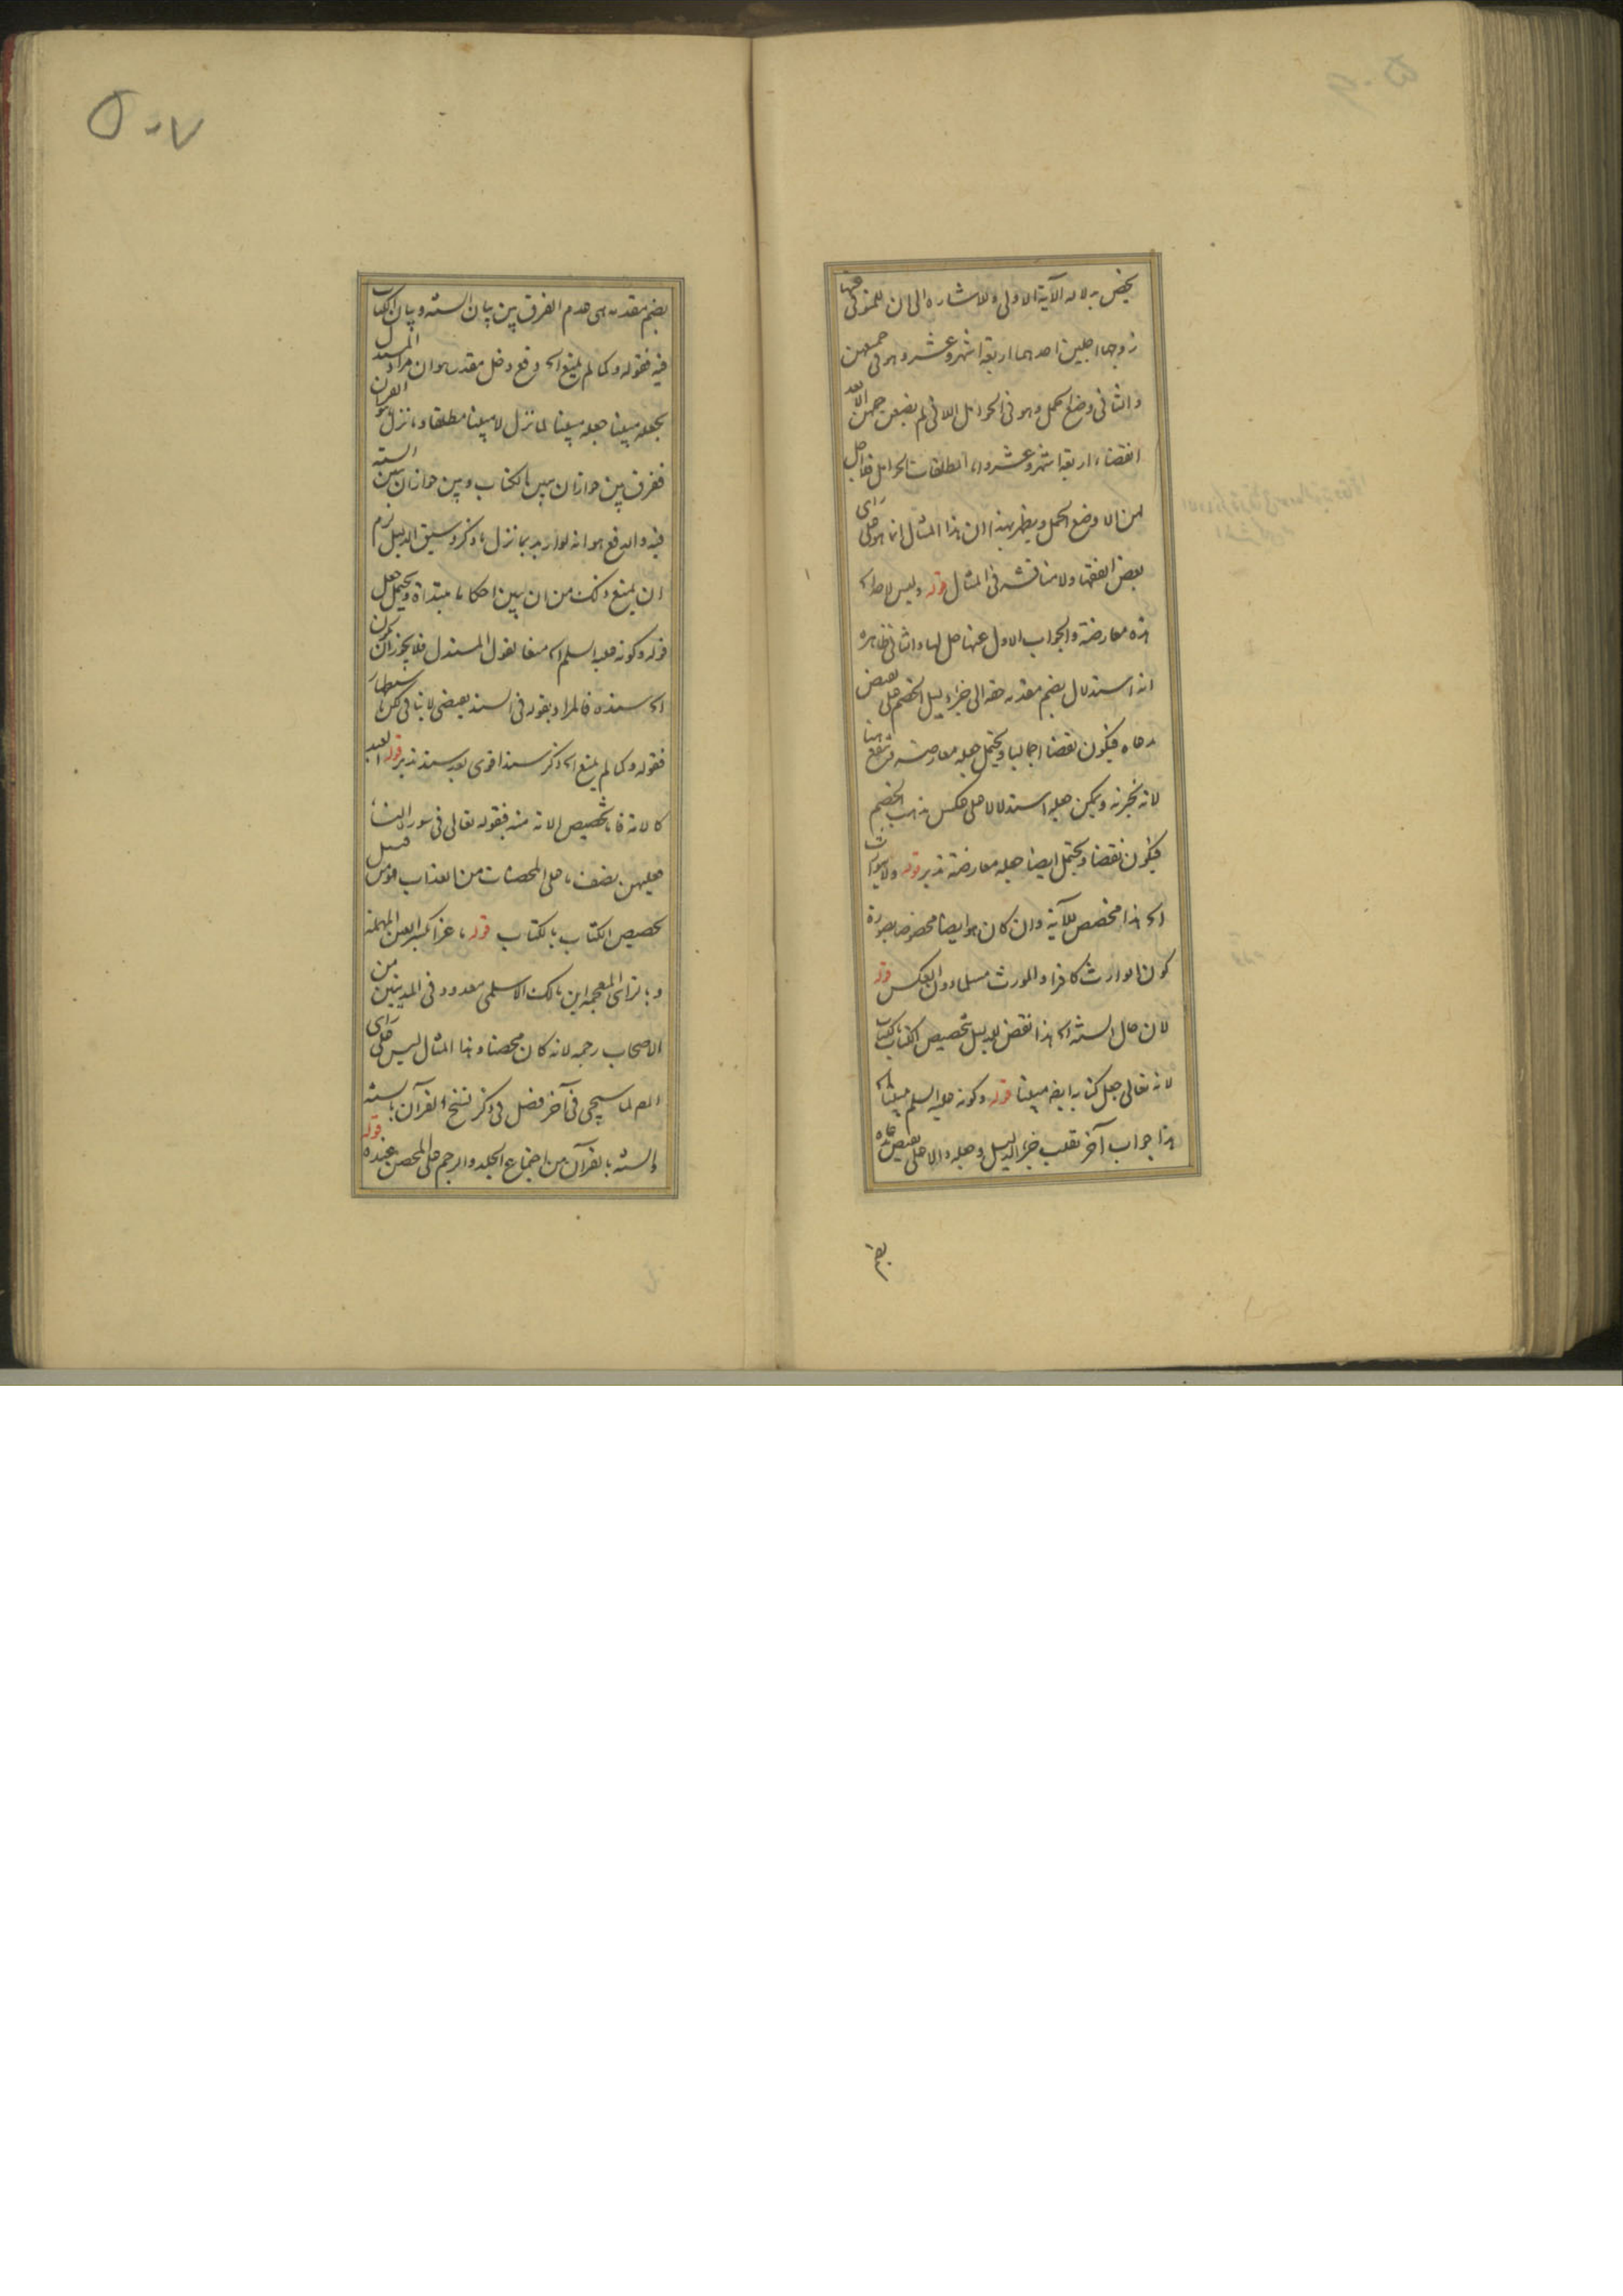 يخص به لاله الآية الاولى وللاشاره الى ان للمتوفى عنها
زوجها اجلين احدهما اربعة اشهر وعشر وهو فى جميعهن
والثانى وضع الحمل وهو فى الحوامل اللاتى لم يضعن حملهن الا بعد
انقضاء اربعة اشهر وعشر واما المطلقات الحوامل فلا اجل
لهن الا وضع الحمل ويظهر بهذا ان هذا المثال انما هو على راى
بعض الفقهاء ولا مناقشه فى المثال قوله وليس لاحد اه
هذه معارضة والجواب الاول عنها حل لها والثانى ظاهره
انه استدلال بضم مقدمه حقه الى جزء دليل الخصم على نقيض
مدعاه فيكون نقضا اجماليا ويحتمل جعله معارضه
لانه يخبرنه ويمكن جعله استدلالا على عكس مذهب الخصم
فيكون نقضا ويحتمل ايضا جعله معارضة تدبر قوله ولا يتوارث
اه هذا مخصص للآية وان كان هو ايضا مخصوصا بصورة
كون الوارث كافرا والمورث مسلما دون العكس قوله
لان حال السنه اه هذا نقض لدليل تخصيص الكتاب بالكتاب
لانه تعالى جعل كتابه ايضا مبينا قوله وكونه عليه السلم مبينا اه
هذا جواب آخر بقلب جزء الدليل وجعله دالا على نقيض مدعاه
بضم
بضم مقدمه هى عدم الفرق بين بيان السنه وبيان الكتاب
فيه فقوله وكما لم يمنع اه دفع دخل مقدر هو ان مراد المستدل
بجعله مبينا جعله مبينا لما نزل لا مبينا مطلقا وما نزل هو القران
ففرق بين جواز ان يبين بالكتاب وبين جواز ان يبين السنه
فيه والدفع هو انه لو اريد بما نزل ما ذكر وسيق الدليل لزم
ان يمنع ذلك من ان يبين احكاما مبتداة ويحتمل جعل
قوله وكونه عليه السلم اه منعا لقول المستدل فلا يجوز ان يكون
اه سنده فالمراد بقوله فى السند
فقوله وكما لم يمنع اه ذكر سند اقوى بعد سند تدبر قوله العبد
كالامة فان تخصيص الامة منه بقوله تعالى فى سورة النساء
فعليهن نصف ما على المحصنات من العذاب فهو من قبيل
تخصيص الكتاب بالكتاب قوله ماعزا بكسر العين المهملة
وبالزاى المعجمه ابن مالك الاسلمى معدود فى المدينيين من
الاصحاب رجمه لانه كان محصنا وهذا المثال ليس على راى
المص لما سيجى فى آخر فصل فى ذكر نسخ القرآن بالسنه
والسنه بالقرآن من اجتماع الجلد والرجم على المحصن عنده قوله
٥٠٧